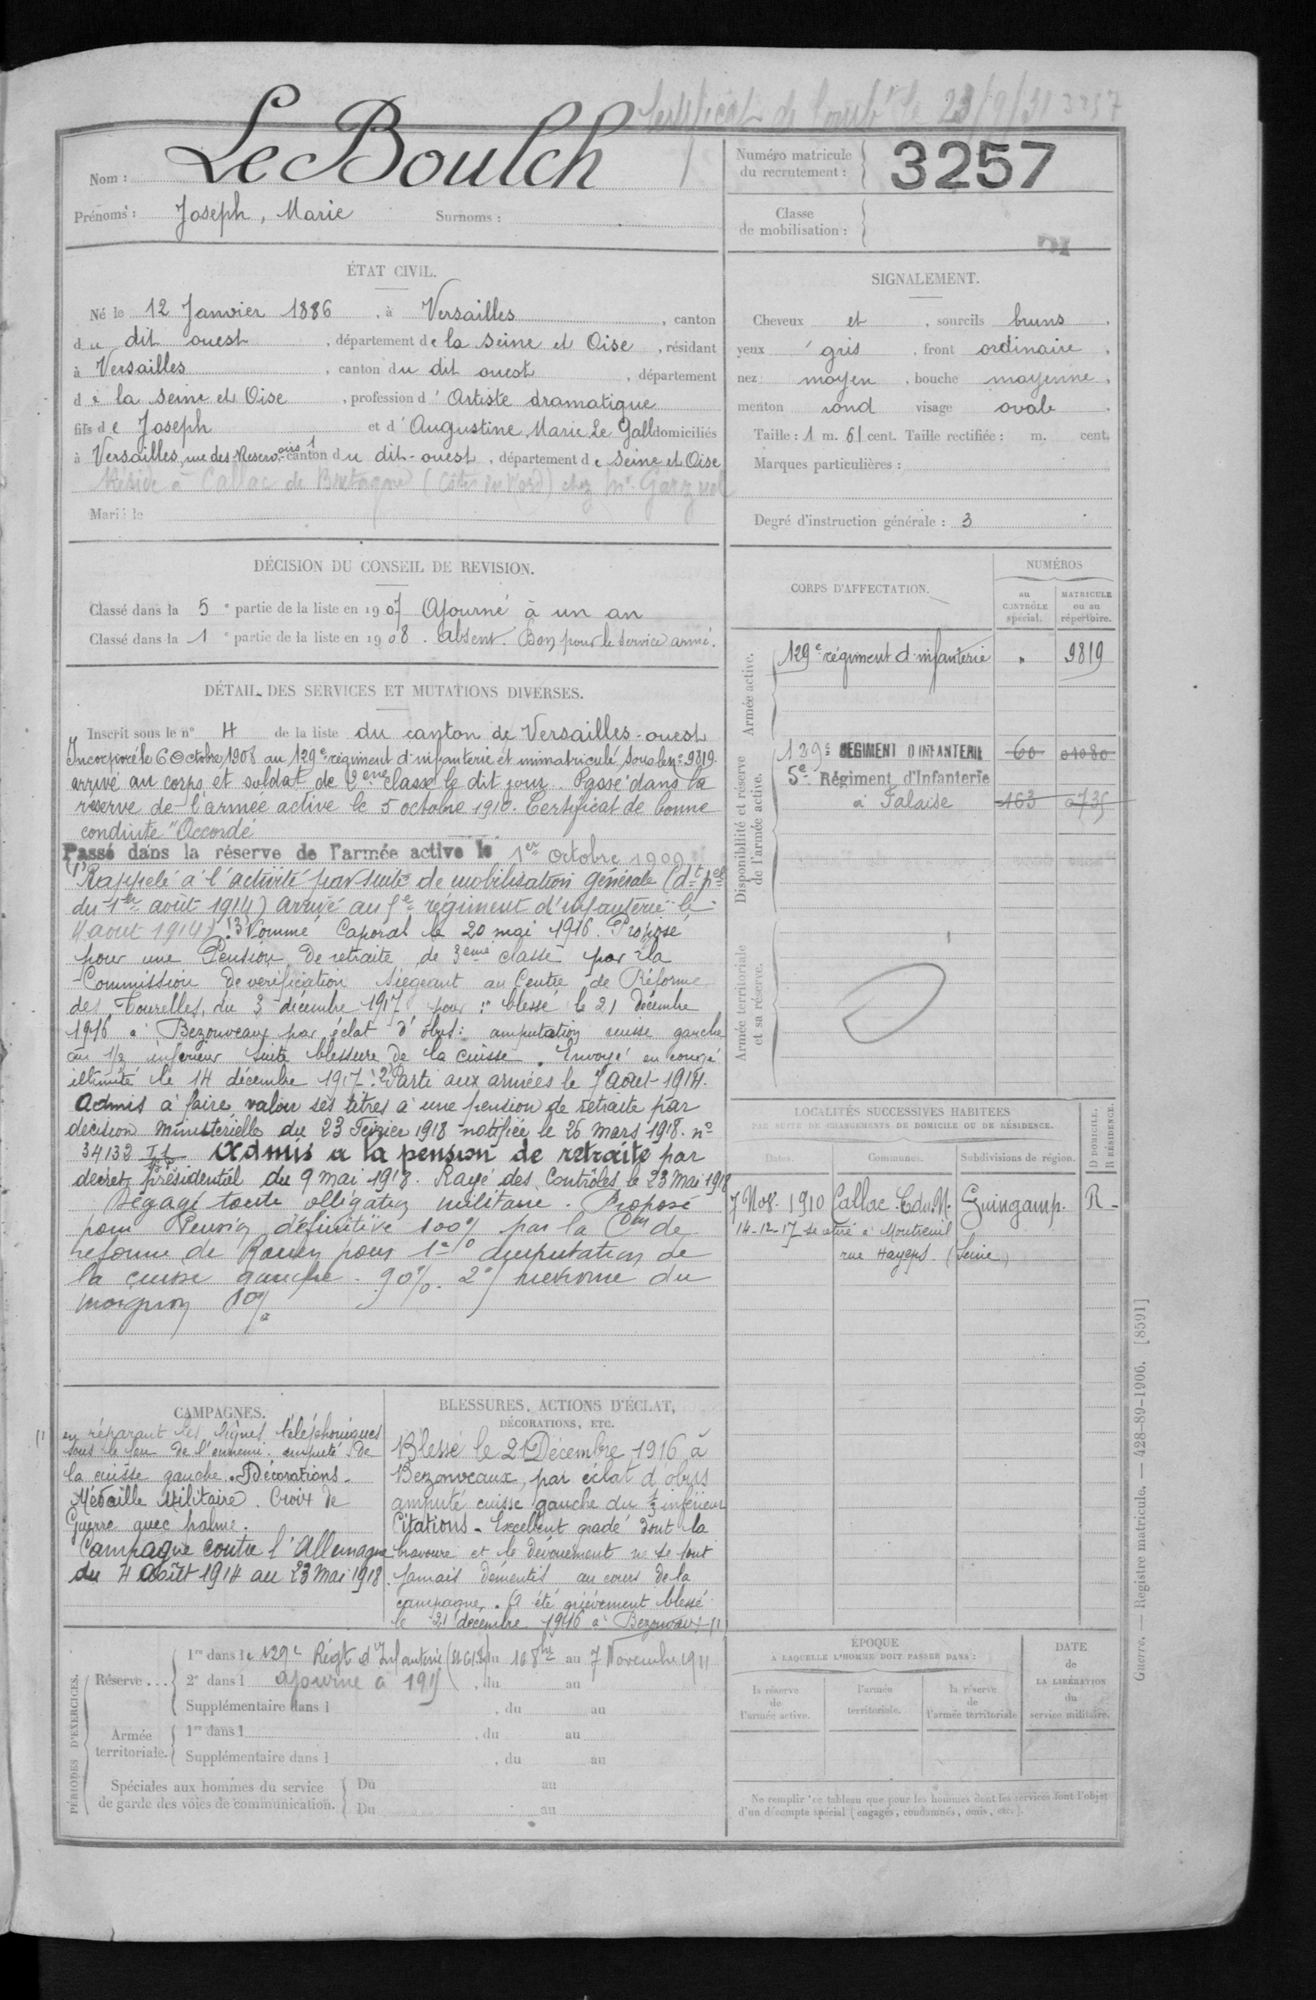 Certificat de Combt le 23/9/31 3257
Nom : Le Boulch
Prénoms : Joseph, Marie Surnoms :
Numéro matricule du recrutement : 3257
Classe de mobilisation :
ÉTAT CIVIL.
Né le 12 Janvier 1886, à Versailles, canton
du dit ouest, département de la Seine et Oise, résidant
à Versailles, canton du dit ouest, département
de la Seine et Oise, profession d'Artiste dramatique
fils de Joseph et d'Augustine, Marie Le Gall domiciliés
à Versailles, rue des Reservoirs 1 canton du dit-ouest, département de Seine et Oise
Réside à Callac de Bretagne (Côtes du Nord) chez Mr
Marié le
SIGNALEMENT.
Cheveux et, sourcils bruns,
yeux gris, front ordinaire,
nez moyen, bouche moyenne,
menton rond visage ovale.
Taille : 1 m. 61 cent. Taille rectifiée : m. cent.
Marques particulières :
Degré d'instruction générale : 3
DÉCISION DU CONSEIL DE REVISION.
Classé dans la 5e partie de la liste en 1907 Ajourné à un an
Classé dans la 1e partie de la liste en 1908. Absent. Bon pour le service armé.
DÉTAIL DES SERVICES ET MUTATIONS DIVERSES.
Inscrit sous le n° 4 de la liste du canton de Versailles-ouest
Incorporé le 6 Octobre 1908 au 129e régiment d'infanterie et immatriculé sous le n° 9819.
arrivé au corps et soldat de 2eme classe le dit jour. Passé dans la
réserve de l'armée active le 5 octobre 1910. Certificat de bonne
conduite "Accordé
Passé dans la réserve de l'armée active le 1er octobre 1909
(1) Rappelé à l'activité par suite de mobilisation générale (dt pel
du 1er août 1914) arrivé au 5e régiment d'infanterie le
4 août 1914). (3) Nommé Caporal le 20 mai 1916. Proposé
pour une Pension de retraite de 3eme classe par la
Commission de vérification siégeant au Centre de Réforme
des Tourelles, du 3 décembre 1917 pour : blessé le 21 décembre
1916 à Bezonveaux par éclat d'obus : amputation cuisse gauche
au 1/3 inférieur suite blessure de la cuisse. Envoyé en congé
illimité le 14 décembre 1917. (2) Parti aux armées le 7 aout 1914.
Admis à faire valoir ses titres à une pension de retraite par
décision ministérielle du 23 Février 1918 notifiée le 26 mars 1918. n°
34132 Admis à la pension de retraite par
decret présidentiel du 9 mai 1918. Rayé des Contrôles le 23 Mai 1918
Dégagé toute obligation militaire. Proposé
pour Pension définitive 100% par la Con de
réforme de Rouen pour 1° amputation de
la cuisse gauche. 90%. 2°) nevrome du
moignon 10%
CORPS D'AFFECTATION.
NUMÉROS
au CONTRÔLE spécial.
MATRICULE ou au répertoire.
Armée active.
129e régiment d'infanterie " 9819
Disponibilité et réserve de l'armée active.
129e RÉGIMENT D'INFANTERIE 60 01080
5e Régiment d'Infanterie
à Falaise 163 0735
Armée territoriale et sa réserve.
LOCALITÉS SUCCESSIVES HABITÉES
PAR SUITE DE CHANGEMENTS DE DOMICILE OU DE RÉSIDENCE.
Dates. Communes. Subdivisions de région. D DOMICILE. R RÉSIDENCE.
7 Nov. 1910 Callac. C. du N. Guingamp. R -
14-12-17 se retire à Montreuil
rue Hayeps. (Seine)
CAMPAGNES.
(1 en réparant les lignes téléphoniques
sous le feu de l'ennemi. amputé de
la cuisse gauche. Décorations.
Médaille Militaire. Croix de
Guerre avec palme.
Campagne contre l'Allemagne
du 4 Août 1914 au 23 Mai 1918.
BLESSURES, ACTIONS D'ÉCLAT,
DÉCORATIONS, ETC.
Blessé le 21 Décembre 1916 à
Bezonveaux, par éclat d'obus
amputé cuisse gauche du 1/3 inférieur
Citations - Excellent gradé dont la
bravoure et le dévouement ne se sont
jamais démentis au cours de la
campagne. A été grièvement blessé
le 21 décembre 1916 à Bezonvaux (1)
PÉRIODES D'EXERCICES.
Réserve... 1re dans le 129e Régt d'Infanterie du 16 8bre au 7 Novembre 1911
2e dans l ajourné à 191, du au
Supplémentaire dans l, du au
Armée territoriale. 1re dans l, du au
Supplémentaire dans l, du au
Spéciales aux hommes du service de garde des voies de communication. Du au
Du au
ÉPOQUE
À LAQUELLE L'HOMME DOIT PASSER DANS :
la réserve de l'armée active.
l'armée territoriale.
la réserve de l'armée territoriale
DATE de LA LIBÉRATION du service militaire.
Ne remplir ce tableau que pour les hommes dont les services font l'objet
d'un décompte spécial (engagés, condamnés, omis, etc.).
Guerre. — Registre matricule. — 428-89-1906. [8591]